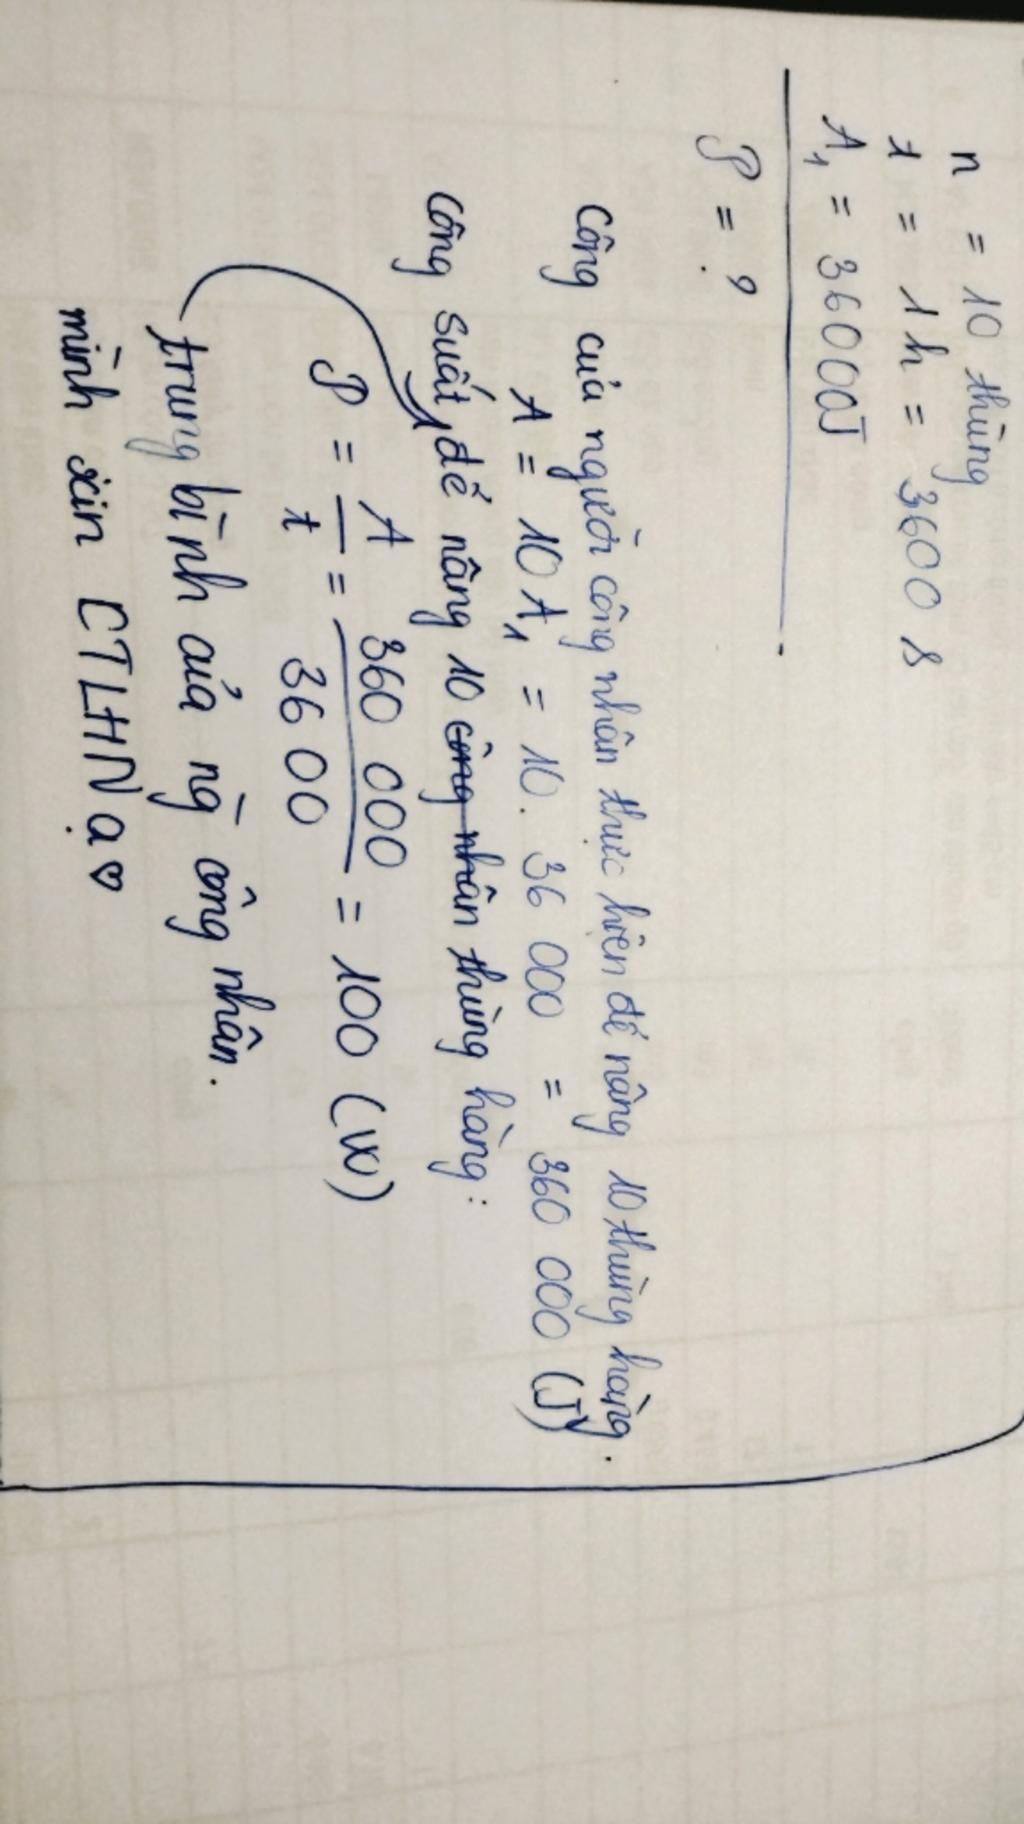 n = 10 thùng
t = 1h = 3600 s
A₁ = 36000J
P = ?
Công của người công nhân thực hiện để nâng 10 thùng hàng.
A = 10A₁ = 10. 36 000 = 360 000 (J)
Công suất để nâng 10 công nhân thùng hàng:
P = A/t = 360 000/3600 = 100 (W)
trung bình của ng công nhân.
mình xin CTLHNạ♡